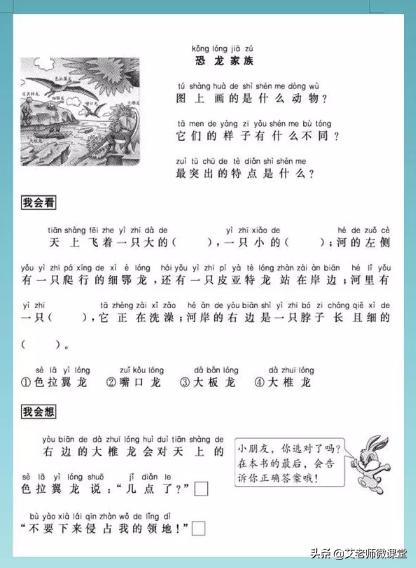 kǒng lóng jiā zú
恐龙家族
tú shàng huà de shì shén me dòng wù
图上画的是什么动物？
tā men de yàng zi yǒu shén me bù tóng
它们的样子有什么不同？
zuì tū chū de tè diǎn shì shén me
最突出的特点是什么？
我会看
tiān shàng fēi zhe yì zhī dà de yì zhī xiǎo de hé de zuǒ cè
天上飞着一只大的（ ），一只小的（ ）；河的左侧
yǒu yì zhī pá xíng de xì è lóng hái yǒu yì zhī pí yà tè lóng zhàn zài àn biān hé lǐ yǒu
有一只爬行的细鳄龙，还有一只皮亚特龙站在岸边；河里有
yì zhī tā zhèng zài xǐ zǎo hé àn de yòu biān shì yì zhī bó zi cháng qiě xì de
一只（ ），它正在洗澡；河岸的右边是一只脖子长且细的
（ ）。
sè lā yì lóng zuǐ kǒu lóng dà bǎn lóng dà zhuī lóng
①色拉翼龙 ②嘴口龙 ③大板龙 ④大椎龙
我会想
yòu biān de dà zhuī lóng huì duì tiān shàng de
右边的大椎龙会对天上的
sè lā yì lóng shuō jǐ diǎn le
色拉翼龙说：“几点了？”□
bù yào xià lái qīn zhàn wǒ de lǐng dì
“不要下来侵占我的领地！”□
小朋友，你选对了吗？
在本书的最后，会告
诉你正确答案哦！
头条 @艾老师微课堂